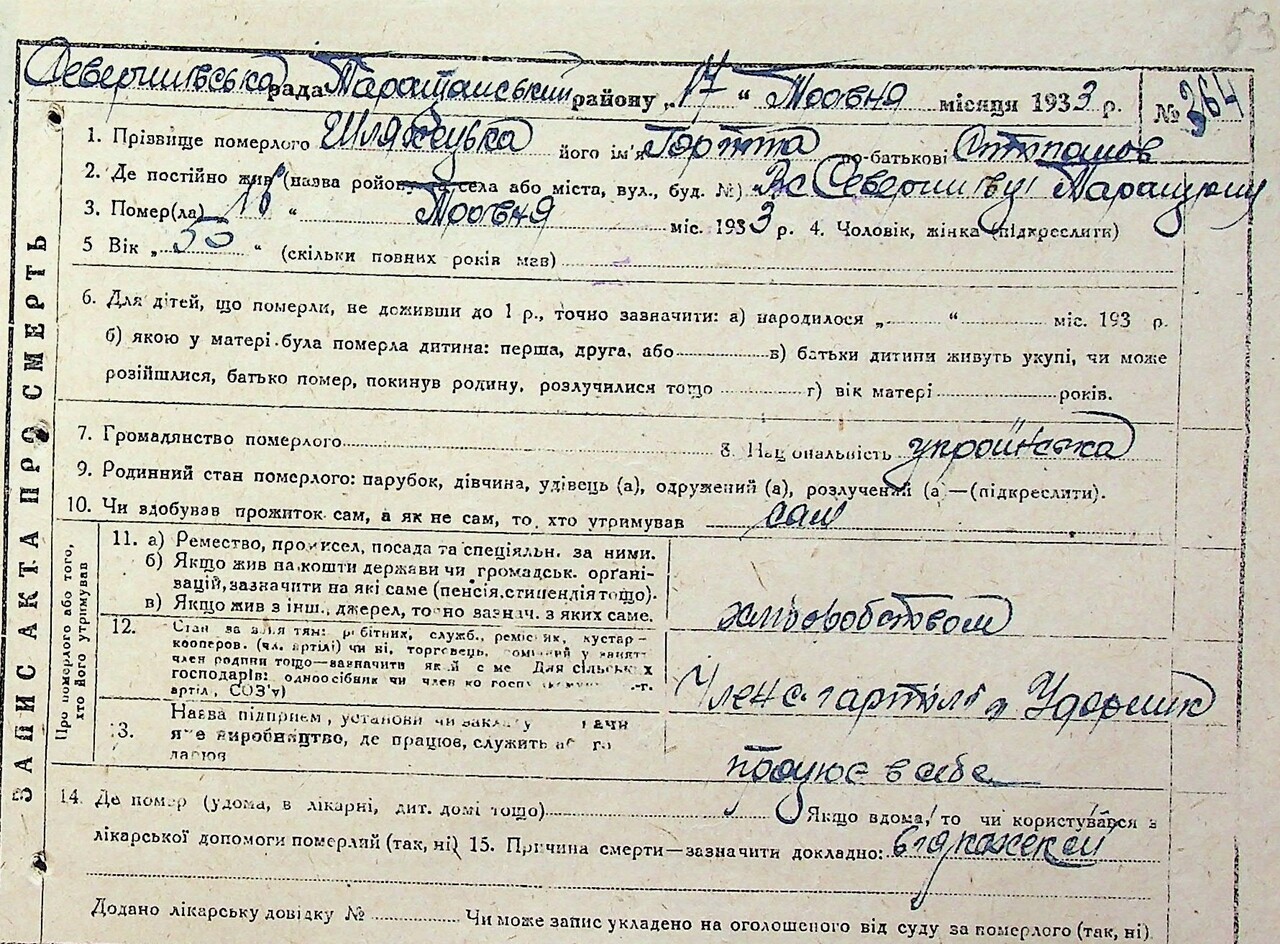 53
Северинівська рада Таращанський району „17“ Травня місяця 1933 р. № 364
1. Прізвище померлого Шляхецька його ім'я по-батькові
2. Де постійно жив (назва району, та села або міста, вул., буд. №) Северинівці Таращ
3. Помер(ла) „16“ Травня міс. 1933 р. 4. Чоловік, жінка (підкреслити)
5 Вік „53“ (скільки повних років мав)
6. Для дітей, що померли, не доживши до 1 р., точно зазначити: а) народилося „ “ міс. 193 р.
б) якою у матері була померла дитина: перша, друга, або в) батьки дитини живуть укупі, чи може
розійшлися, батько помер, покинув родину, розлучилися тощо г) вік матері років.
7. Громадянство померлого 8. Національність українська
9. Родинний стан померлого: парубок, дівчина, удівець (а), одружений (а), розлучений (а)—(підкреслити).
10. Чи здобував прожиток сам, а як не сам, то хто утримував сам
ЗАПИС АКТА ПРО СМЕРТЬ
Про померлого або того, хто його утримував
11. а) Ремество, промисел, посада та спеціяльн. за ними.
б) Якщо жив на кошти держави чи громадськ. орґані-
зацій, зазначити на які саме (пенсія, стипендія тощо).
в) Якщо жив з інш. джерел, точно зазнач. з яких саме.
хліборобством
12. Стан за заняттям: робітник, служб., ремісник, кустар-
кооперов. (чл. артілі) чи ні, торговець, у занят.
член родини тощо—зазначити який саме Для сільських
господарів: одноосібник чи член
артіл, СОЗ'у)
Член с.г артілі Ударник
13. Назва підприєм, установи чи закладу
виробництво, де працюв, служить або
працює в себе
14. Де помер (удома, в лікарні, дит. домі тощо) Якщо вдома, то чи користувався з
лікарської допомоги померлий (так, ні) 15. Причина смерти—зазначити докладно:
Додано лікарську довідку № Чи може запис укладено на оголошеного від суду за померлого (так, ні).